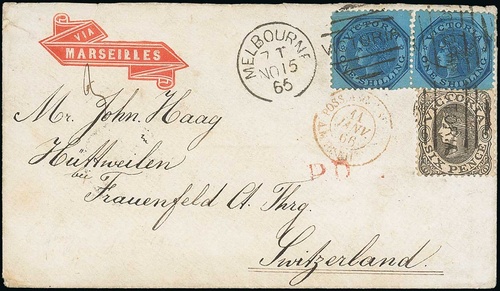 VIA
MARSEILLES
MELBOURNE
7 T
NO 15
65
VICTORIA
ONE SHILLING
VICTORIA
ONE SHILLING
VICTORIA
SIX PENCE
11
JANV.
66
P.D.
Mr. John. Haag
Hüttweilen
bei
Frauenfeld Ct. Thrg.
Switzerland.